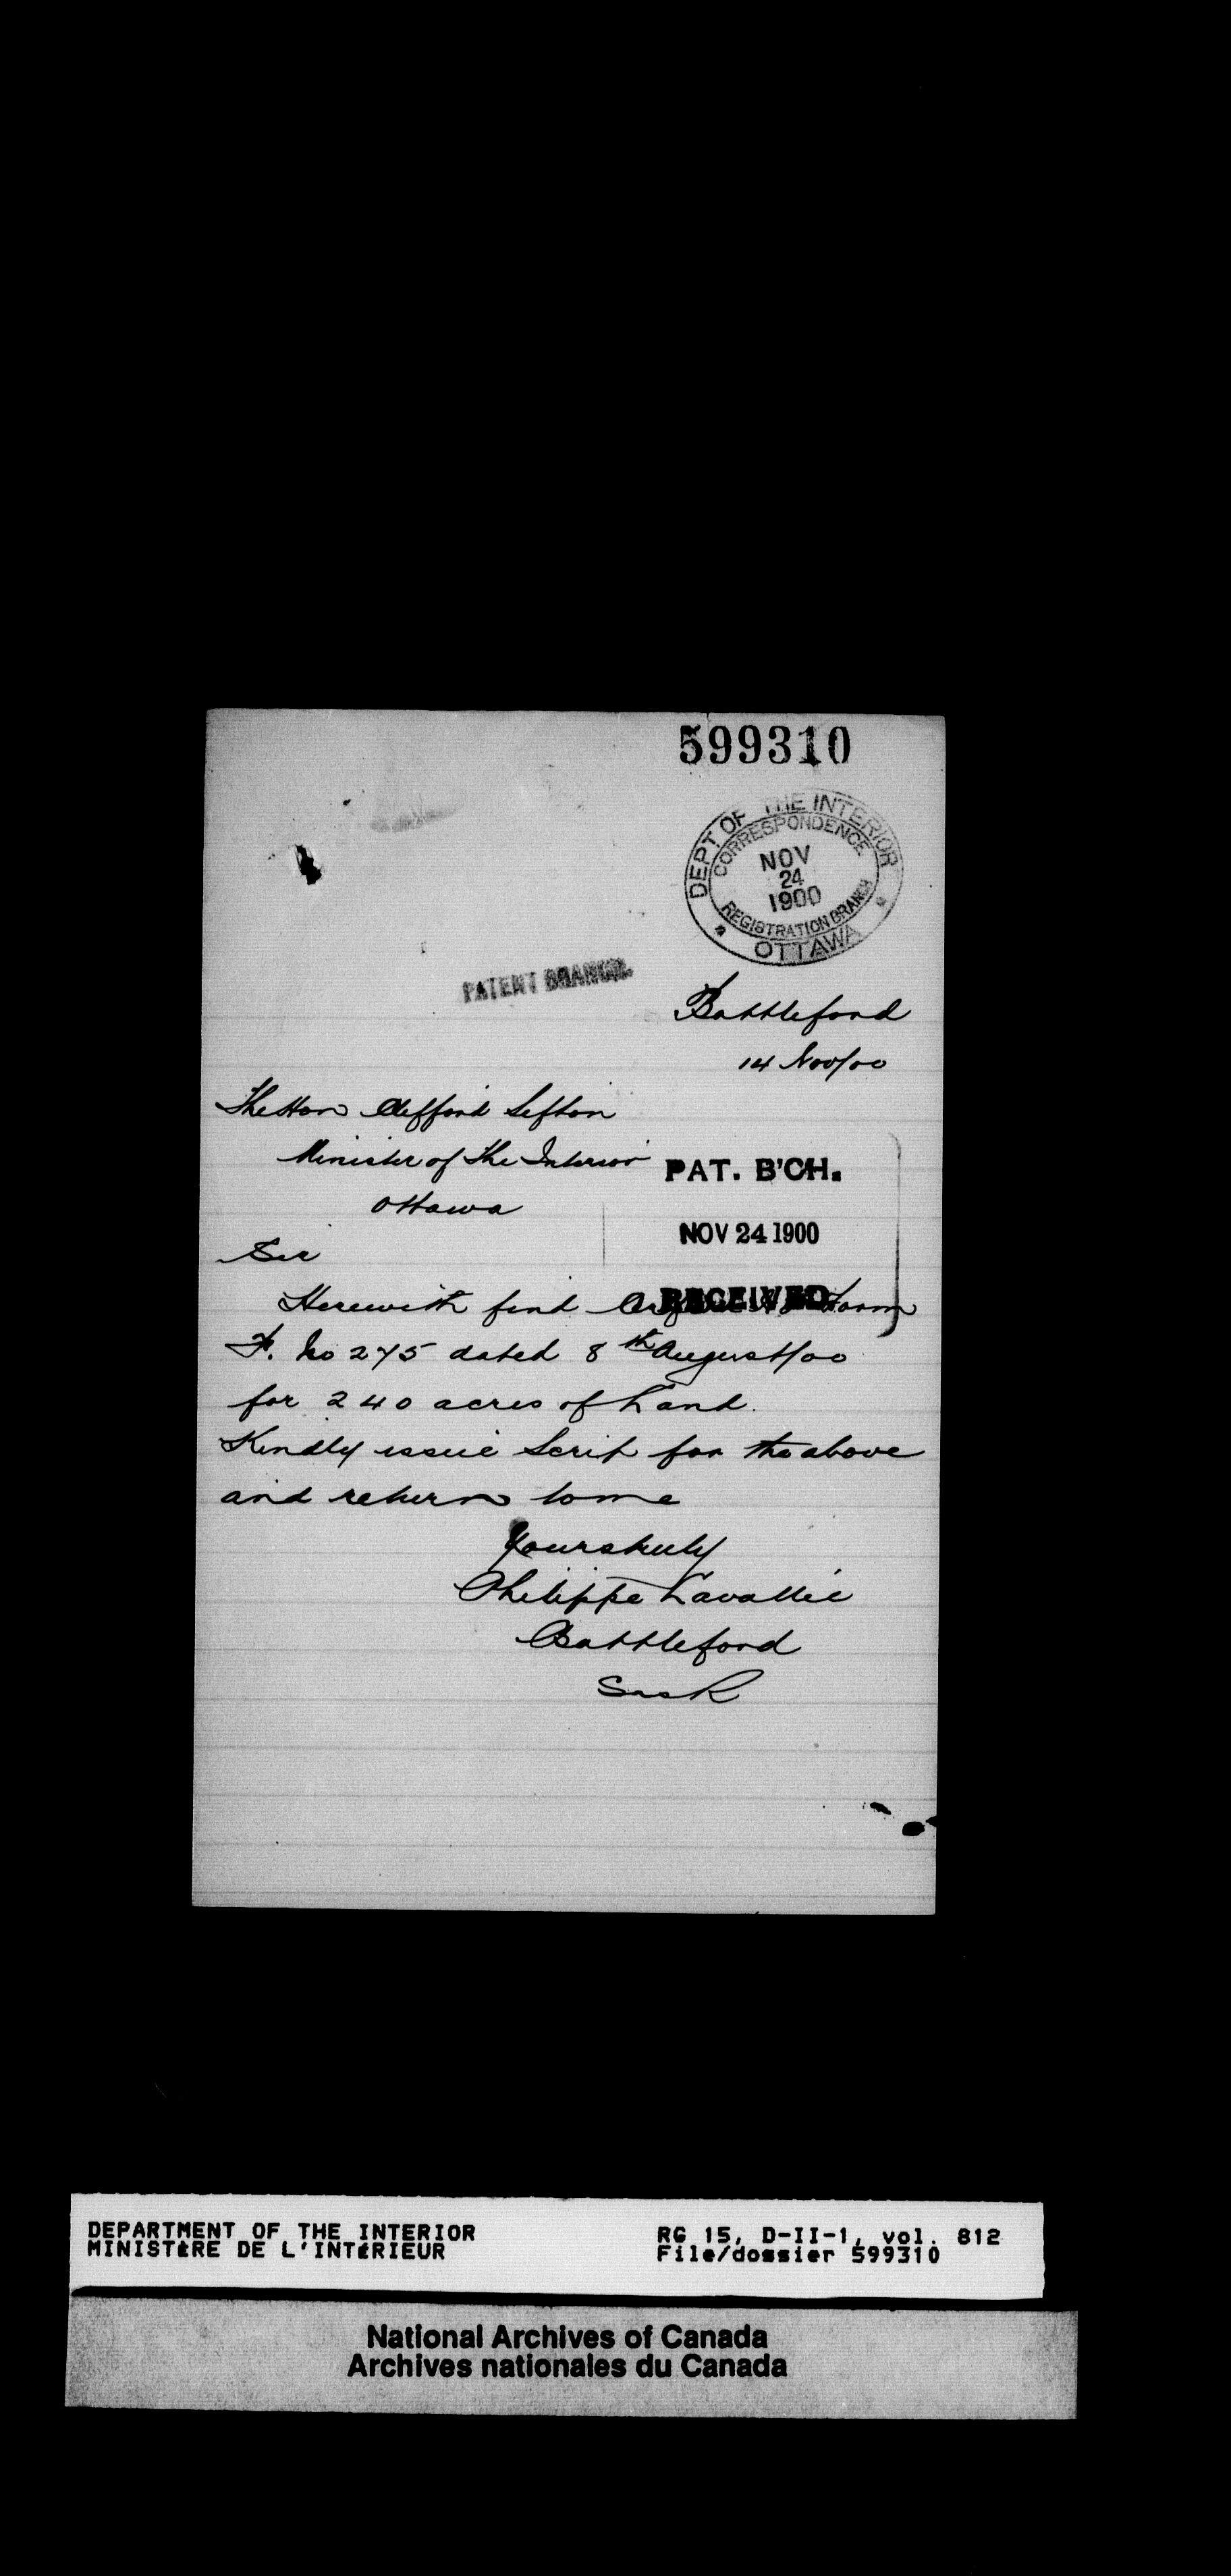 599310
DEPT OF THE INTERIOR
CORRESPONDENCE
NOV
24
1900
REGISTRATION BRANCH
OTTAWA
PATENT BRANCH.
Battleford
14 Nov/00
The Hon Clifford Sifton
Minister of the Interior
Ottawa
PAT. B'CH.
NOV 24 1900
RECEIVED
Sir
Herewith find Form
F. No 275 dated 8th August/00
for 240 acres of Land.
Kindly issue Scrip for the above
and return to me
Yours truly
Philippe Lavallée
Battleford
Sask
DEPARTMENT OF THE INTERIOR
MINISTÈRE DE L'INTÉRIEUR
RG 15, D-II-1, vol. 812
File/dossier 599310
National Archives of Canada
Archives nationales du Canada